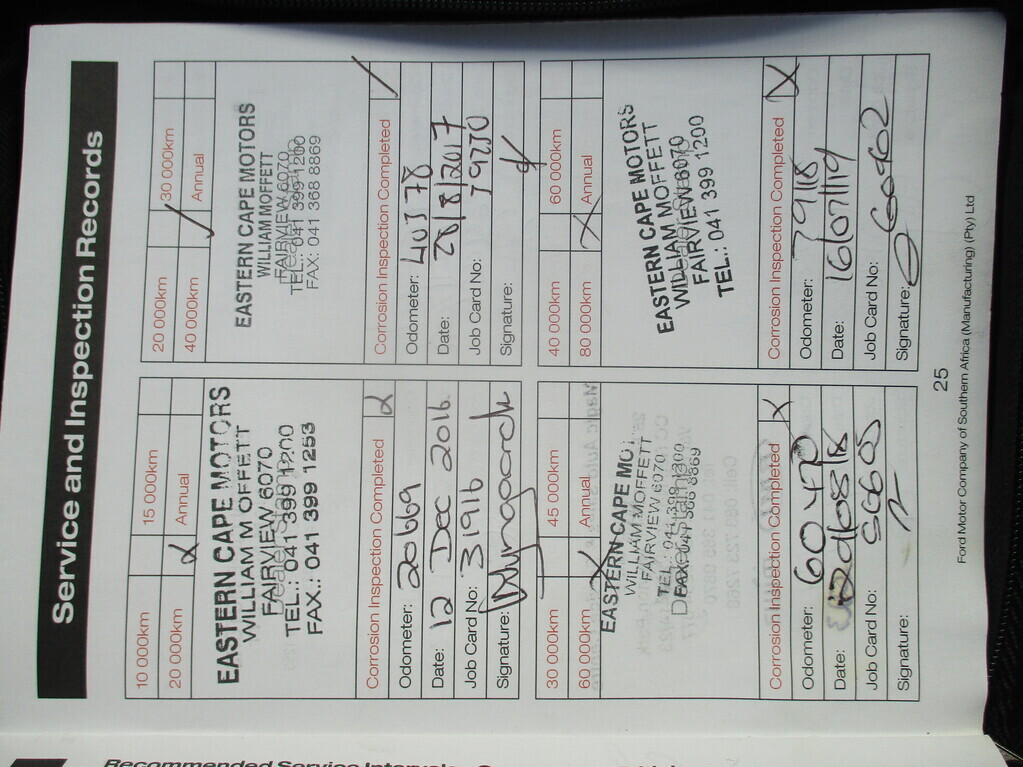 Service and Inspection Records
10 000km 15 000km
20 000km Annual
EASTERN CAPE MOTORS
WILLIAM MOFFETT
FAIRVIEW 6070
TEL.: 041 399 1200
FAX.: 041 399 1253
Corrosion Inspection Completed
Odometer: 20669
Date: 12 Dec 2016
Job Card No: 31916
Signature:
20 000km 30 000km
40 000km Annual
EASTERN CAPE MOTORS
WILLIAM MOFFETT
FAIRVIEW 6070
TEL.: 041 399 1200
FAX: 041 368 8869
Corrosion Inspection Completed
Odometer: 40378
Date: 28/8/2017
Job Card No: 39270
Signature:
30 000km 45 000km
60 000km Annual
EASTERN CAPE MOT
WILLIAM MOFFETT
FAIRVIEW 6070
TEL.: 041 399 1200
FAX: 041 368 8869
Corrosion Inspection Completed
Odometer: 60470
Date:
Job Card No:
Signature:
40 000km 60 000km
80 000km Annual
EASTERN CAPE MOTORS
WILLIAM MOFFETT
FAIRVIEW 6070
TEL.: 041 399 1200
Corrosion Inspection Completed
Odometer: 79118
Date: 16/07/119
Job Card No: 60402
Signature:
25
Ford Motor Company of Southern Africa (Manufacturing) (Pty) Ltd